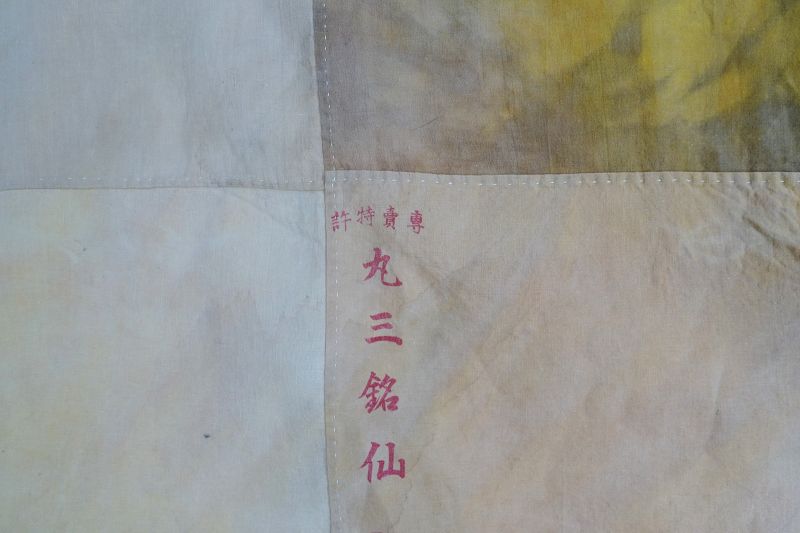 專賣特許
丸三銘仙